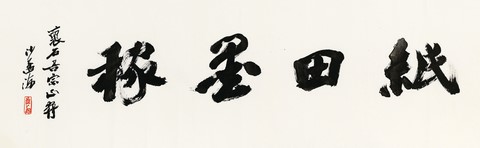 紙田墨稼
襄石吾宗正
沙孟海